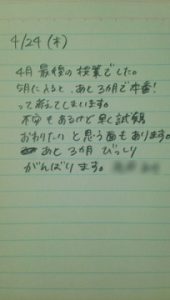 4/24 (木)
4月 最後の授業でした。
5月に入ると、あと3ヵ月で本番!
って考えてしまいます。
不安もあるけど早く試験
おわりたいと思う面もあります。
あと 3ヵ月 びっしり
がんばります。